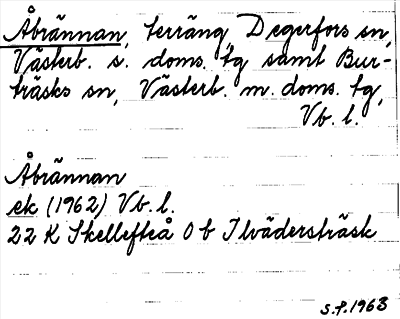 Åbrännan, terräng Degerfors sn,
Västerb. s. doms. tg samt Bur-
träsks sn, Västerb. m. doms. tg,
Vb. l.
Åbrännan
ek (1962) Vb. l.
22 K Skellefteå 0 b Ilvädersträsk
S.P. 1963